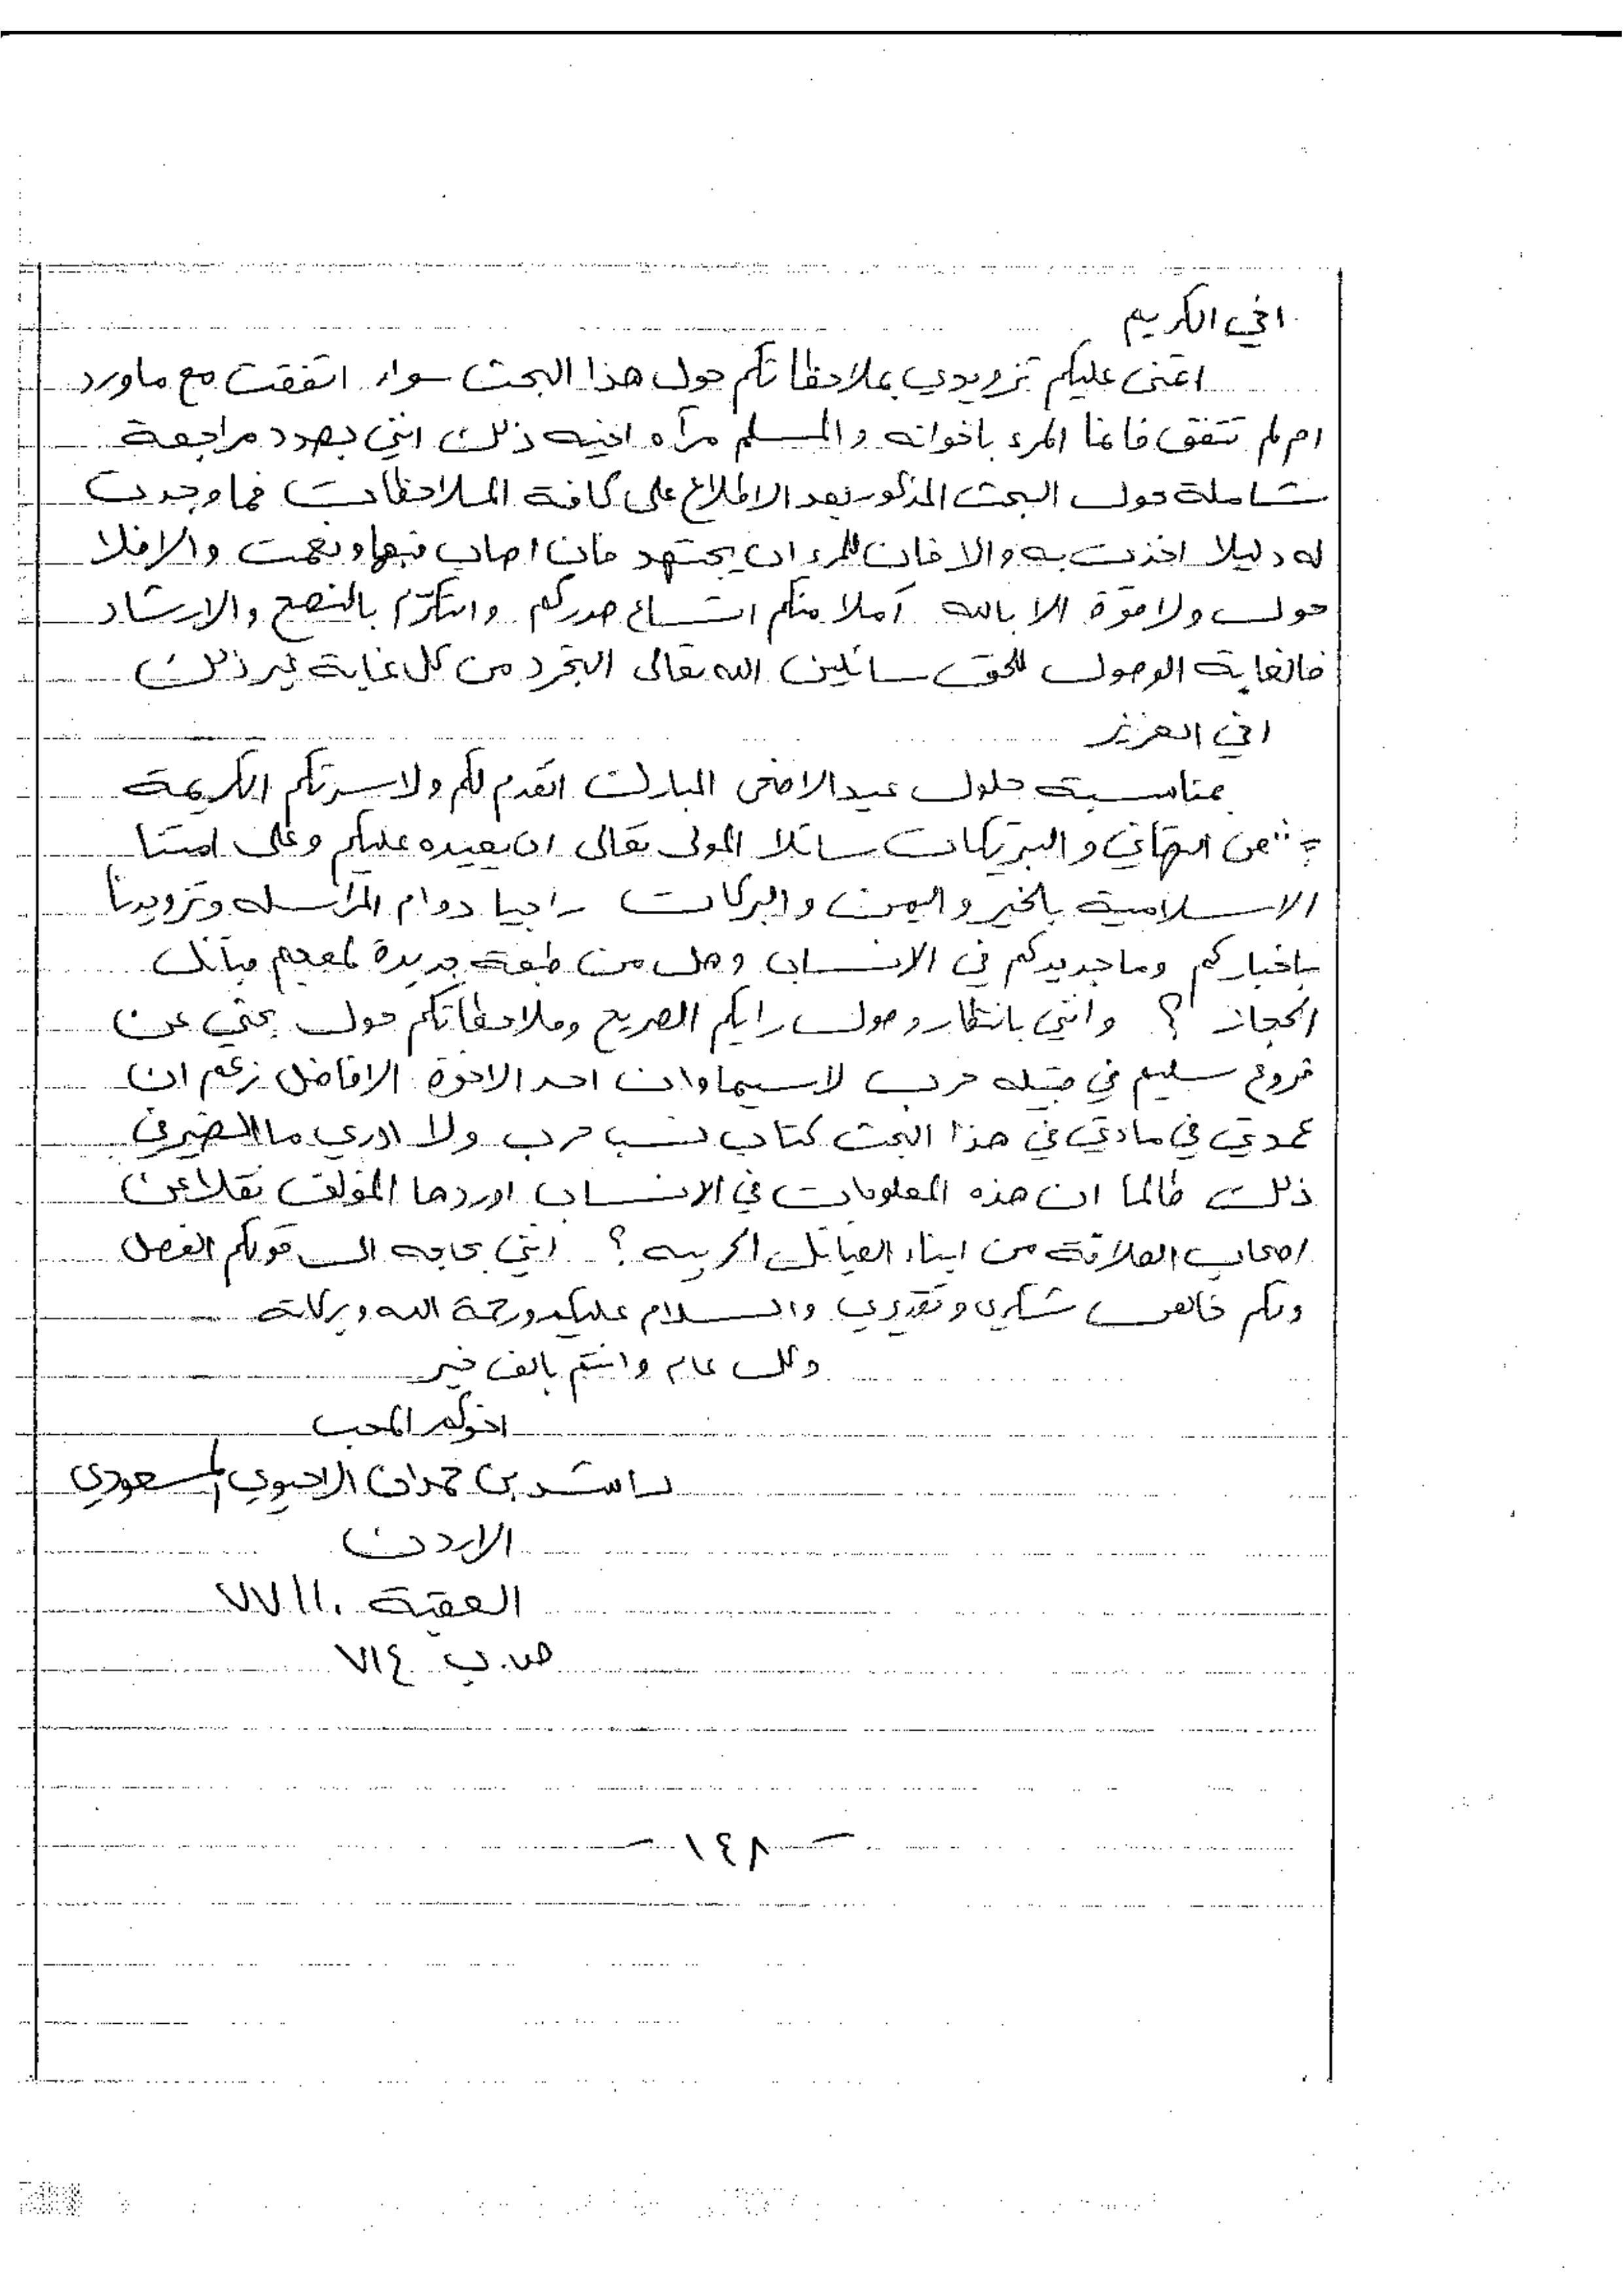 اخي الكريم
اتمنى عليكم تزويدي بملاحظاتكم حول هذا البحث سواء اتفقت مع ماورد
ام لم تتفق فانما المرء باخوانه والمسلم مرآه اخيه ذلك انني بصدد مراجعة
شاملة حول البحث المذكور بعد الاطلاع على كافة الملاحظات فما وجدت
له دليلا اخذت به والا فان للمرء ان يجتهد فان اصاب فبها ونعمت والا فلا
حول ولا قوة الا بالله آملا منكم اتساع صدركم والتكرم بالنصح والارشاد
فالغاية الوصول للحق سائلين الله تعالى التجرد من كل غاية غير ذلك
اخي العزيز
بمناسبة حلول عيد الاضحى المبارك اتقدم لكم ولاسرتكم الكريمة
التهاني والتبريكات سائلا المولى تعالى ان يعيده عليكم وعلى امتنا
الاسلامية بالخير واليمن والبركات راجيا دوام المراسله وتزويدنا
باخباركم وما جديدكم في الانساب وهل من طبعة جديدة لمعجم قبائل
الحجاز ؟ وانني بانتظار وصول رايكم الصريح وملاحظاتكم حول بحثي عن
فروع سليم في قبيله حرب لاسيما وان احد الاخوة الافاضل زعم ان
عمدتي في مادتي في هذا البحث كتاب نسب حرب ولا ادري ما الضير في
ذلك طالما ان هذه المعلومات في الانساب اوردها المؤلف نقلا عن
اصحاب العلاقة من ابناء القبائل الحربيه ؟ انني بحاجه الى قولكم الفصل
ولكم خالص شكري وتقديري والسلام عليكم ورحمة الله وبركاته
وكل عام وانتم بالف خير
اخوكم المحب
راشد بن حمدان الاحيوي المسعودي
الاردن
العقبة ٧٧١١٠
ص.ب ٧١٤
- ١٤٨ -